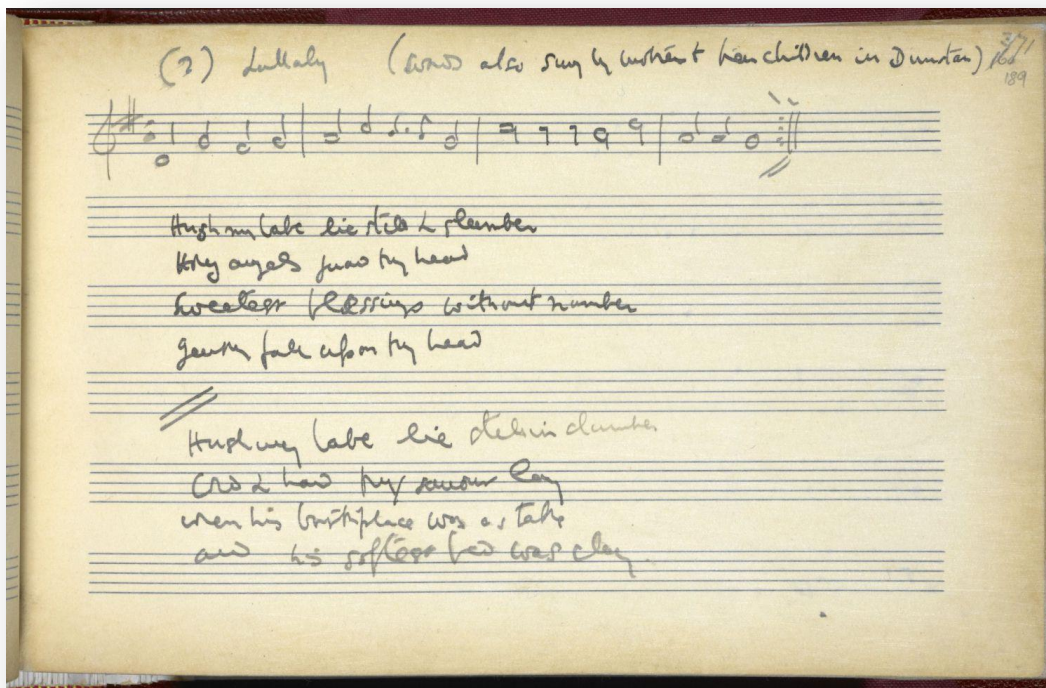 (2) Lullaby (words also sung by mothers to their children in Dunstan)
189
Hush my babe lie still & slumber
Holy angels guard thy head
Sweetest blessings without number
gently fall upon thy head
Hush my babe lie still in slumber
Cold & hard thy saviour lay
when his birthplace was a stable
and his softest bed was clay.